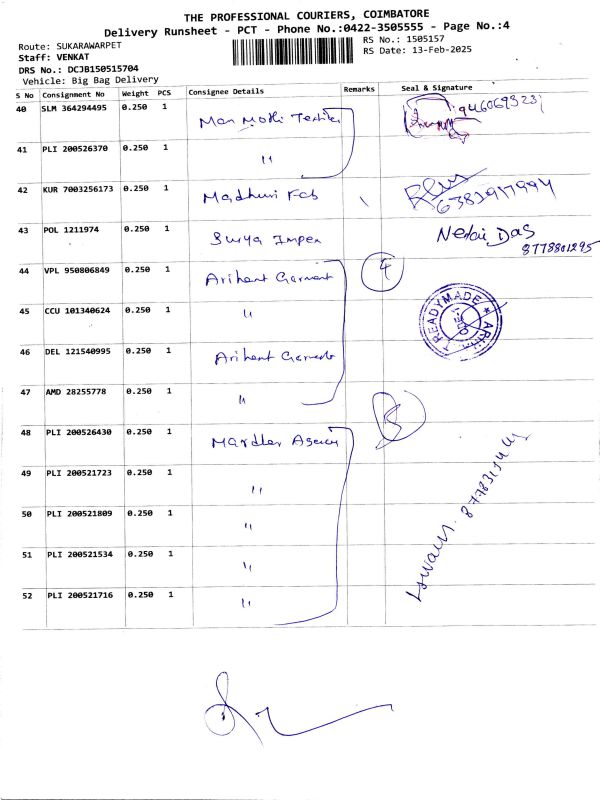 THE PROFESSIONAL COURIERS, COIMBATORE
Delivery Runsheet - PCT - Phone No.:0422-3505555 - Page No.:4
Route: SUKARAWARPET
RS No.: 1505157
Staff: VENKAT
RS Date: 13-Feb-2025
DRS No.: DCJB150515704
Vehicle: Big Bag Delivery
S No Consignment No Weight PCS Consignee Details Remarks Seal & Signature
40 SLM 364294495 0.250 1
41 PLI 200526370 0.250 1 "
42 KUR 7003256173 0.250 1 Madhuri Fab
43 POL 1211974 0.250 1 Surya Impex Das
8778801295
44 VPL 950806849 0.250 1 Arihant Garment 4
45 CCU 101340624 0.250 1 " READYMADE
46 DEL 121540995 0.250 1 Arihant Garment
47 AMD 28255778 0.250 1 "
48 PLI 200526430 0.250 1 Agency 5
49 PLI 200521723 0.250 1 "
50 PLI 200521809 0.250 1 "
51 PLI 200521534 0.250 1 "
52 PLI 200521716 0.250 1 "